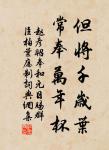 但將千歲葉
常奉萬年杯
趙彥昭奉和元日賜群
臣柏葉應制詞典網集